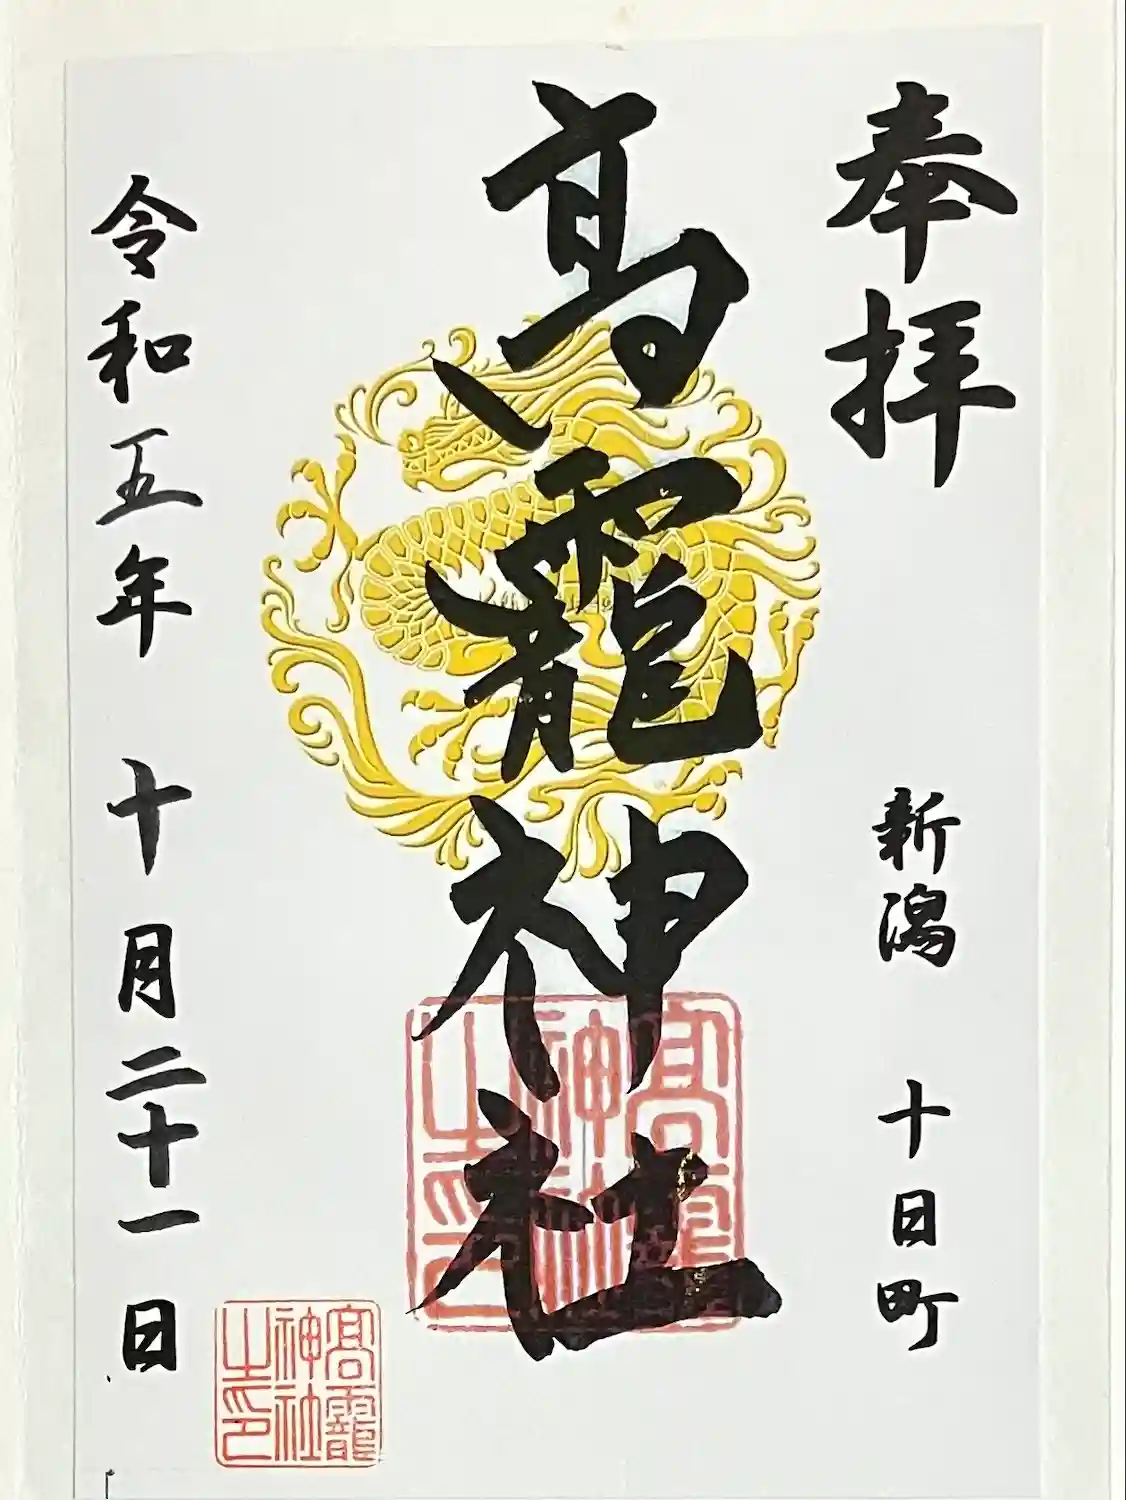 奉拝
新潟 十日町
高龗神社
令和五年 十月二十一日
高龗
神社
之印
高龗
神社
之印